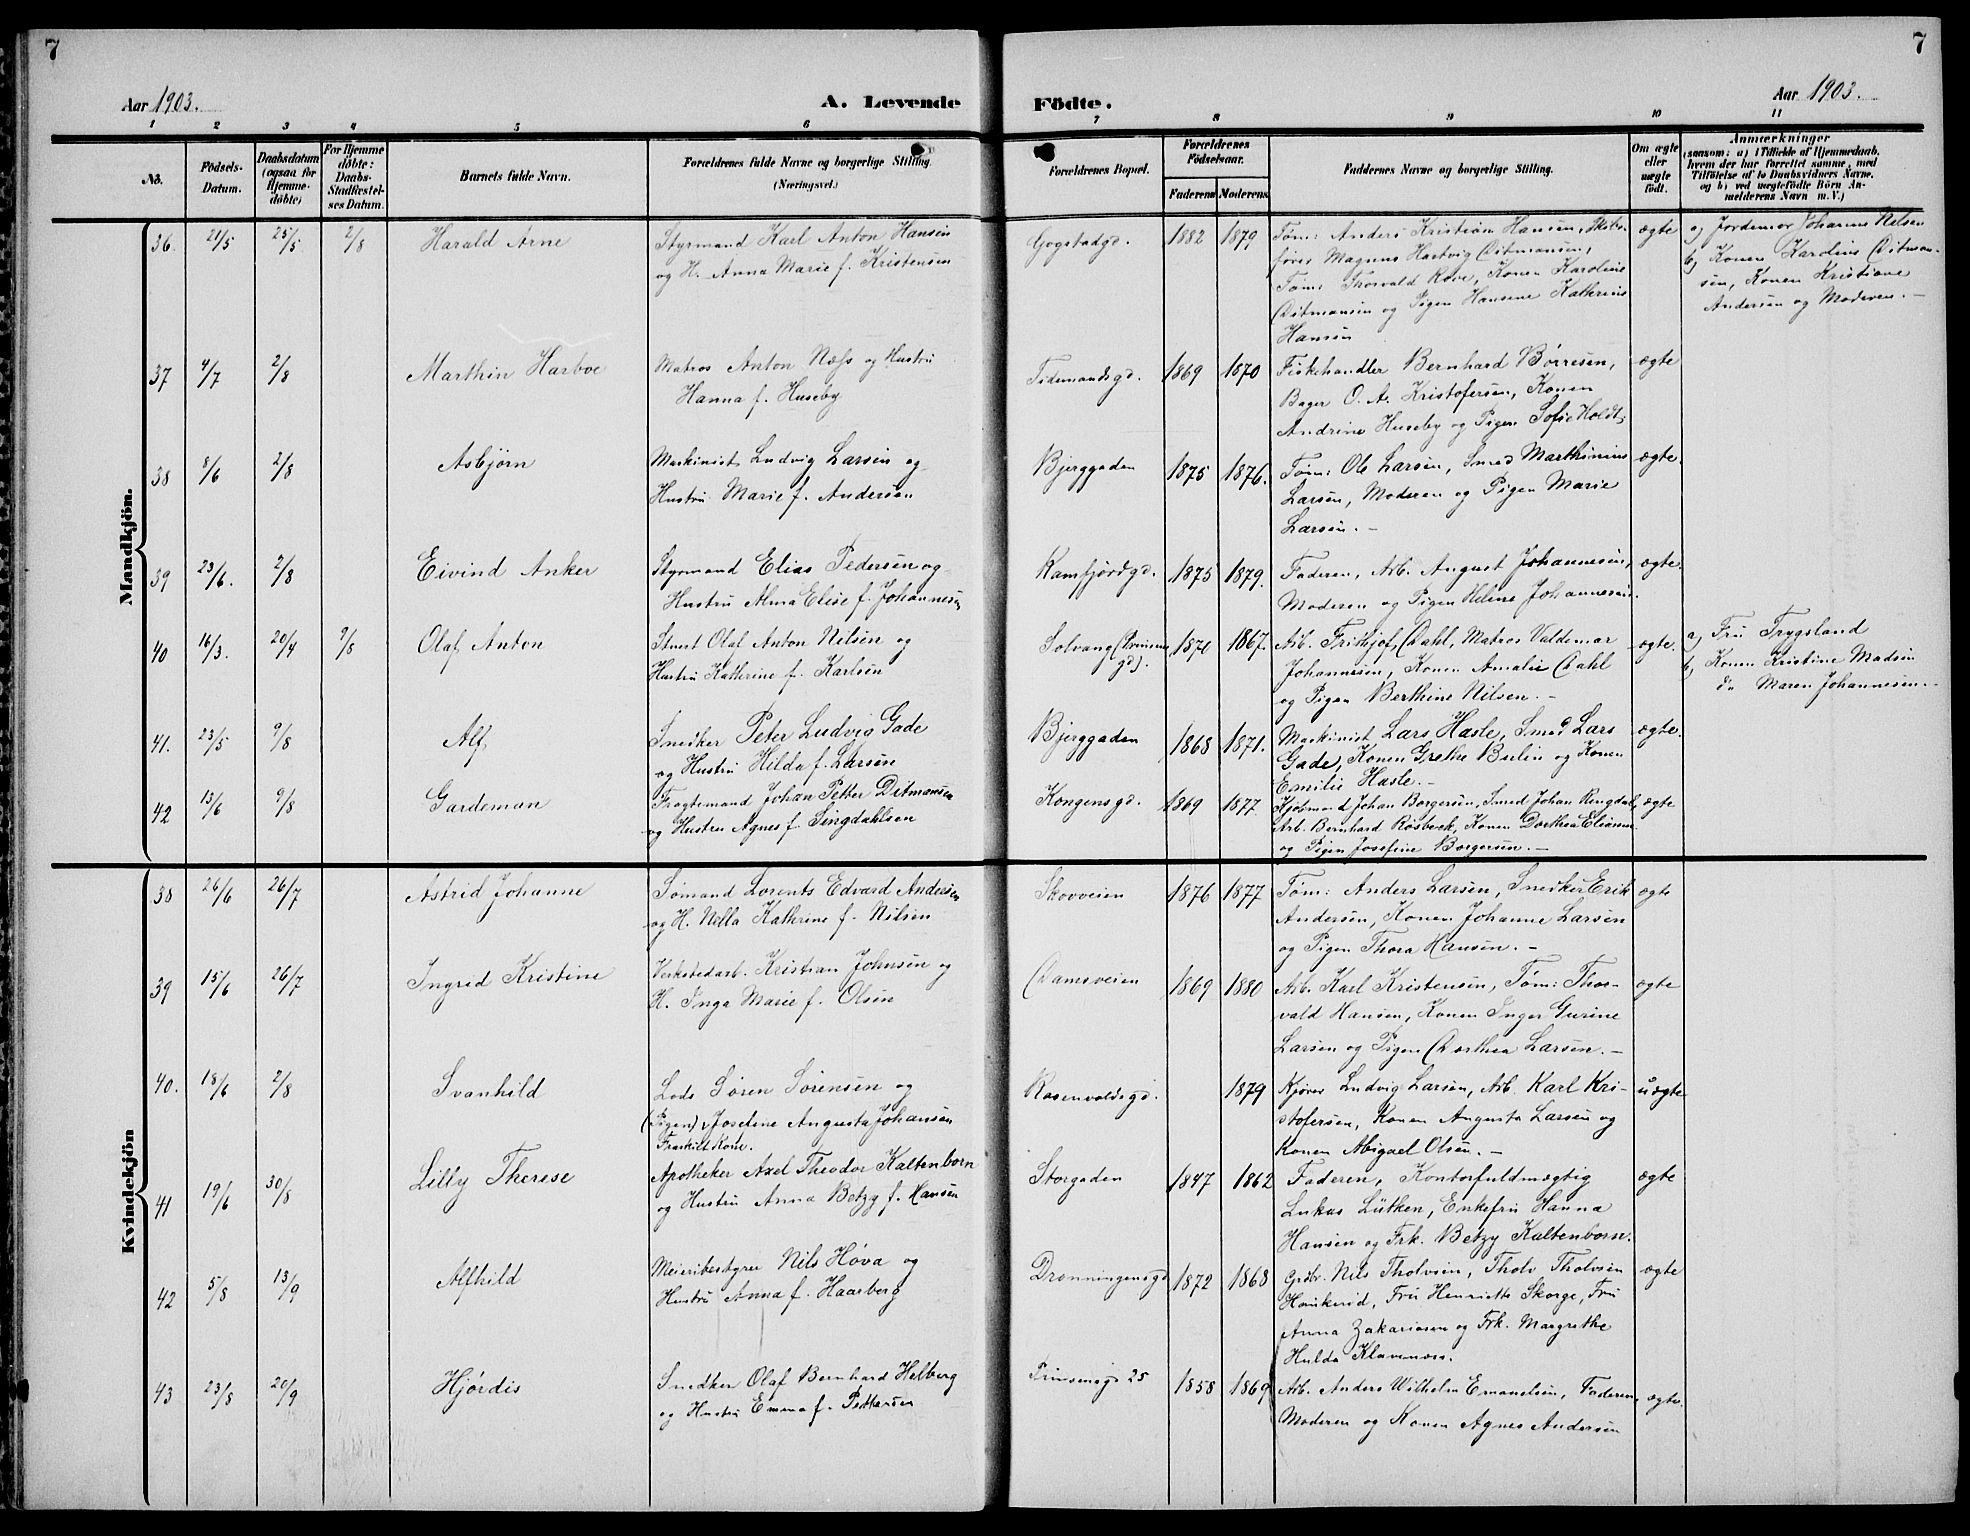 7
7
Aar 1903.
A. Levende
Födte.
Aar 1903.
1 2 3 4 5 6 7 8 9 10 11
No.
Födsels-Datum.
Daabsdatum (ogsaa för Hjemme-döbte)
For Hjemme döbte: Daabs-Stadfæstel-ses Datum.
Barnets fulde Navn.
Forældrenes fulde Navne og borgerlige Stilling.
(Næringsvei.)
Forældrenes Bopæl.
Forældrenes Födselsaar.
Faderens
Moderens
Faddernes Navne og borgerlige Stilling.
Om ægte eller uægte födt.
Anmærkninger
(saasom: a) i Tilfælde af Hjemmedaab, hvem der har forrettet samme, med Tilföielse af to Daabsvidners Navne, og b) ved uægtefödte Börn An-melderens Navn m. V.)
Mandkjön.
36. 21/5 25/5 2/8 Harald Arne
Styrmand Karl Anton Hansen
og H. Anna Marie f. Kristensen
Gogstadgd. 1882 1879
Tøm: Anders Kristian Hansen, Skibs-
fører Magnus Hartvig Ditmansen,
Tøm: Thorvald Rove, Konen Karoline
Ditmansen og Pigen Hansine Kathrine
Hansen
ægte
a) Jordemor Johanne Nilsen
b) Konen Karoline Ditman-
sen, Konen Kristiane
Andersen og Moderen. —
37 4/7 2/8 Marthin Harboe
Matros Anton Næss og Hustru
Hanna f. Huseby
Tidemandsgd. 1869 1870
Fiskehandler Bernhard Børresen,
Bager O. A. Kristofersen, Konen
Andrine Huseby og Pigen Sofie Holdt.
ægte
38 8/6 2/8 Asbjørn
Maskinist Ludvig Larsen og
Hustru Marie f. Andersen
Bjerggaden 1875 1876.
Tøm: Ole Larsen, Smed Marthinius
Larsen, Moderen og Pigen Marie
Larsen. —
ægte.
39 23/6. 2/8 Eivind Anker
Styrmand Elias Pedersen og
Hustru Alma Elise f. Johannesen
Kamfjordgd. 1875 1879.
Faderen, Arb. August Johannesen,
Moderen og Pigen Helene Johannesen.
ægte.
40 16/3. 20/4 9/8 Olaf Anton
Stuert Olaf Anton Nilsen og
Hustru Kathrine f. Karlsen
Solvang (Prinsens
gd). 1870 1867.
Arb. Frithjof Dahl, Matros Valdemar
Johannesen, Konen Amalie Dahl
og Pigen Berthine Nilsen. —
ægte.
a) Fru Trygsland
b) Konen Kristine Madsen
do Maren Johannesen. —
41. 23/5 9/8 Alf
Snedker Peter Ludvig Gade
og Hustru Hilda f. Larsen
Bjerggaden 1868 1871.
Maskinist Lars Hasle, Smed Lars
Gade, Konen Grethe Bulin og Konen
Emilie Hasle. —
ægte.
42 13/6 9/8 Gardeman
Fragtemand Johan Petter Ditmansen
og Hustru Agnes f. Singdahlsen
Kongensgd. 1869 1877
Kjøbmand Johan Borgersen, Smed Johan Rengdal,
Arb. Bernhard Rosbeck, Konen Dorthea
og Pigen Josefine Borgersen. —
ægte
Kvindekjön
38 26/6 26/7 Astrid Johanne
Sømand Lorents Edvard Andersen
og H. Nella Kathrine f. Nilsen
Skovveien 1876 1877
Tøm: Anders Larsen, Snedker Erik
Andersen, Konen Johanne Larsen
og Pigen Thora Hansen. —
ægte
39 15/6 26/7 Ingrid Kristine
Verkstedarb. Kristian Johnsen og
H. Inga Marie f. Olsen
Damsveien 1869 1880
Arb. Karl Kristensen, Tøm: Thor-
vald Hansen, Konen Inger Gurine
Larsen og Pigen Dorthea Larsen. —
ægte
40. 18/6 2/8 Svanhild
Lods Søren Sørensen og
(Pigen) Josefine Augusta Johansen
Fraskilt Kone.
Rosenvoldsgd. 1879
Kjører Ludvig Larsen, Arb. Karl Kri-
stofersen, Konen Augusta Larsen og
Konen Abigael Olsen. —
uægte
41 19/6 30/8 Lilly Therese
Apotheker Axel Theodor Kaltenborn
og Hustru Anna Betzy f. Hansen
Storgaden 1847 1862
Faderen, Kontorfuldmægtig
Lukas Lütken, Enkefru Hanna
Hansen og Frk. Betzy Kaltenborn.
ægte
42 5/8 13/9 Alfhild
Meieribestyrer Nils Høva og
Hustru Anna f. Haarberg
Dronningensgd 1872 1868
Grdbr. Nils Tholvsen, Tholv Tholvsen
Haukerød, Fru Henriette Skorge, Fru
Anna Zakariasen og Frk. Margrethe
Hulda Klavenæss.
ægte
43 23/8 20/9 Hjørdis
Snedker Olaf Bernhard Helberg
og Hustru Emma f. Pettersen
Prinsensgd 25 1858 1869
Arb. Anders Wilhelm Emanelsen, Faderen,
Moderen og Konen Agnes Andersen
ægte.